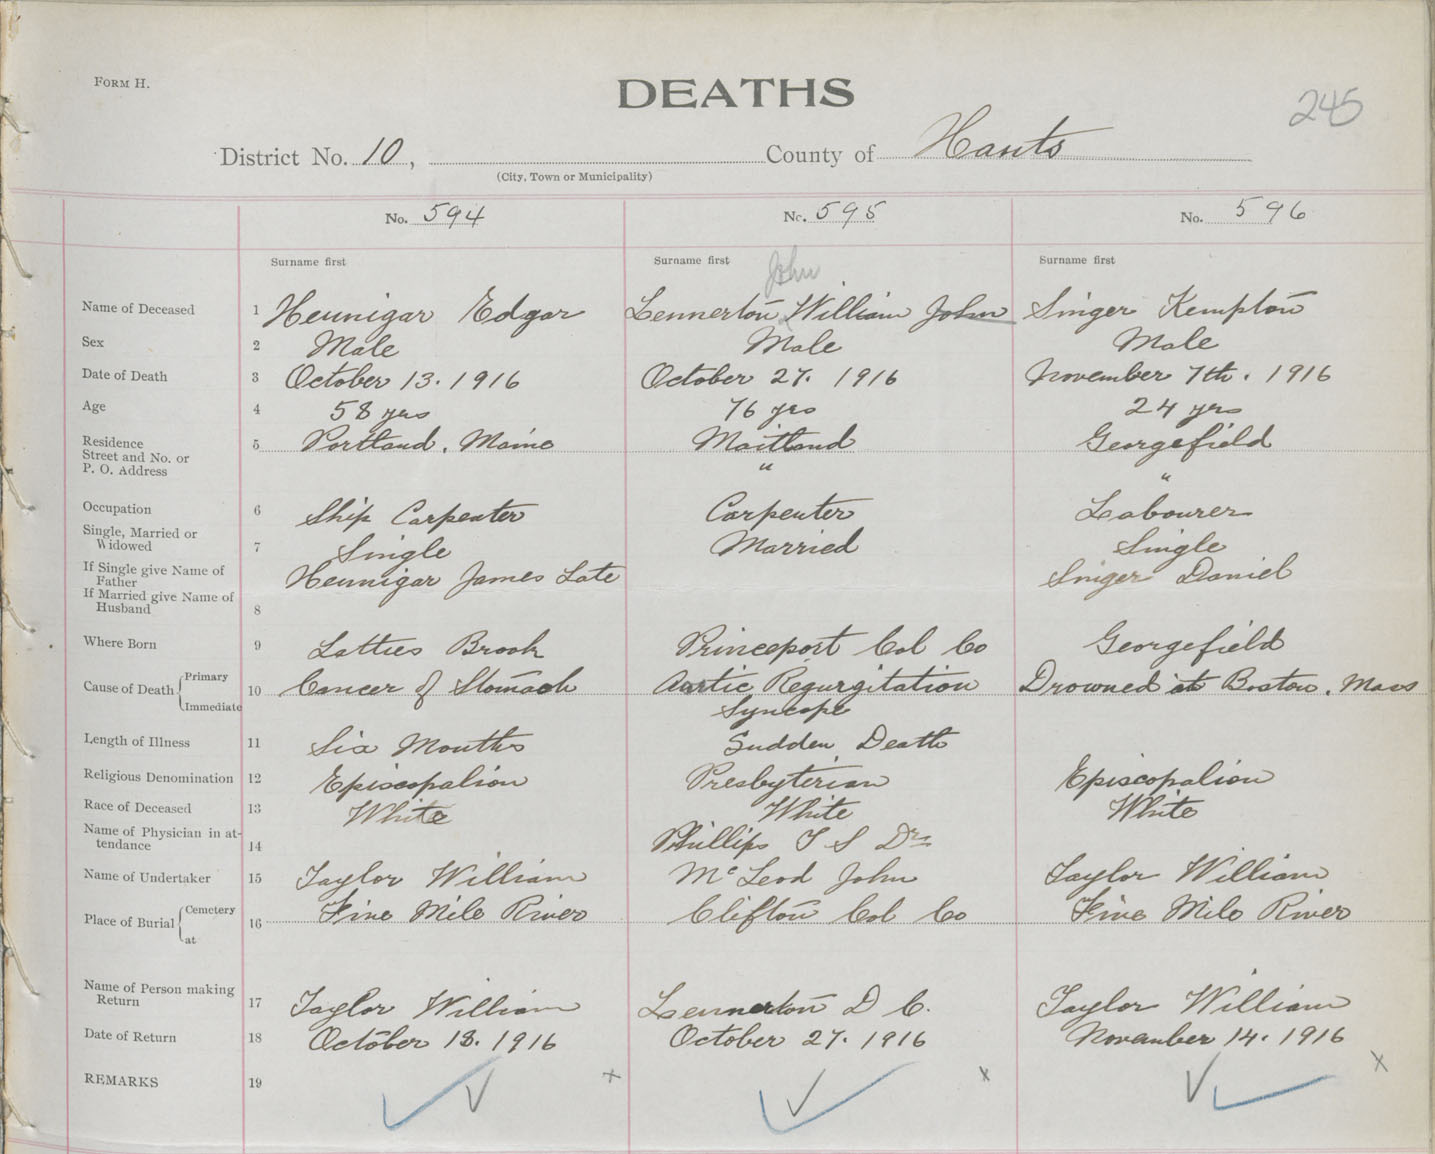 FORM H.
DEATHS
245
District No. 10, County of Hants
(City, Town or Municipality)
No. 594 No. 595 No. 596
Surname first Surname first Surname first
John
Name of Deceased 1 Hennigar Edgar Lennerton William John Singer Kempton
Sex 2 Male Male Male
Date of Death 3 October 13. 1916 October 27. 1916 November 7th. 1916
Age 4 58 yrs 76 yrs 24 yrs
Residence 5 Portland, Maine Maitland Georgefield
Street and No. or
P. O. Address " "
Occupation 6 Ship Carpenter Carpenter Labourer
Single, Married or
Widowed 7 Single Married Single
If Single give Name of
Father Hennigar James Late Singer Daniel
If Married give Name of
Husband 8
Where Born 9 Latties Brook Princeport Col Co Georgefield
Cause of Death Primary 10 Cancer of Stomach Aortic Regurgitation Drowned at Boston, Mass
Immediate Syncope
Length of Illness 11 Six Months Sudden Death
Religious Denomination 12 Episcopalian Presbyterian Episcopalian
Race of Deceased 13 White White White
Name of Physician in at-
tendance 14 Phillips T S Dr
Name of Undertaker 15 Taylor William McLeod John Taylor William
Place of Burial Cemetery 16 Five Mile River Clifton Col Co Five Mile River
at
Name of Person making
Return 17 Taylor William Lennerton D C. Taylor William
Date of Return 18 October 13. 1916 October 27. 1916 November 14. 1916
REMARKS 19 x x x